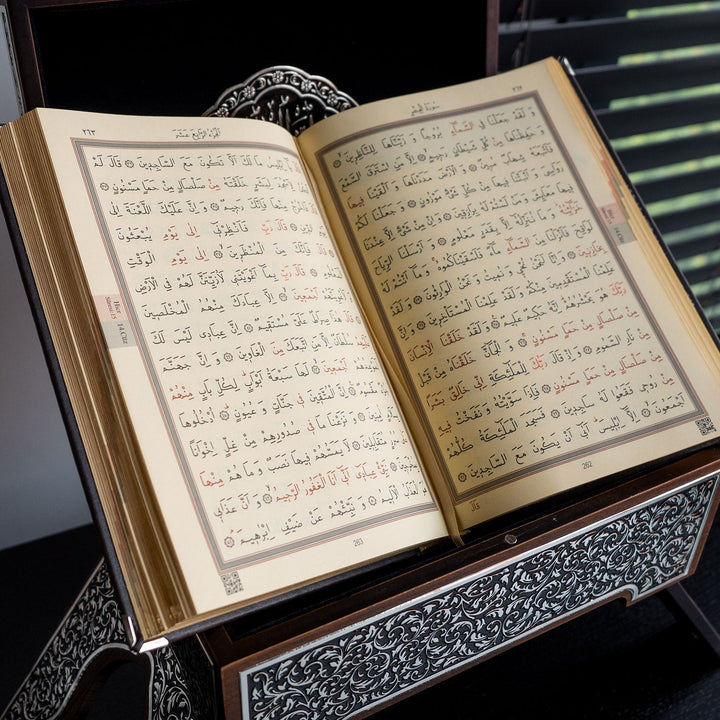 سُورَةُ الْحِجْرِ
٢٦٢
وَلَقَدْ جَعَلْنَا فِي السَّمَاءِ بُرُوجًا وَزَيَّنَّاهَا لِلنَّاظِرِينَ
وَحَفِظْنَاهَا مِنْ كُلِّ شَيْطَانٍ رَجِيمٍ إِلَّا مَنِ اسْتَرَقَ السَّمْعَ
فَأَتْبَعَهُ شِهَابٌ مُبِينٌ وَالْأَرْضَ مَدَدْنَاهَا وَأَلْقَيْنَا فِيهَا
رَوَاسِيَ وَأَنْبَتْنَا فِيهَا مِنْ كُلِّ شَيْءٍ مَوْزُونٍ وَجَعَلْنَا لَكُمْ
فِيهَا مَعَايِشَ وَمَنْ لَسْتُمْ لَهُ بِرَازِقِينَ وَإِنْ مِنْ شَيْءٍ إِلَّا عِنْدَنَا
خَزَائِنُهُ وَمَا نُنَزِّلُهُ إِلَّا بِقَدَرٍ مَعْلُومٍ وَأَرْسَلْنَا الرِّيَاحَ
لَوَاقِحَ فَأَنْزَلْنَا مِنَ السَّمَاءِ مَاءً فَأَسْقَيْنَاكُمُوهُ وَمَا أَنْتُمْ لَهُ
بِخَازِنِينَ وَإِنَّا لَنَحْنُ نُحْيِي وَنُمِيتُ وَنَحْنُ الْوَارِثُونَ وَلَقَدْ
عَلِمْنَا الْمُسْتَقْدِمِينَ مِنْكُمْ وَلَقَدْ عَلِمْنَا الْمُسْتَأْخِرِينَ وَإِنَّ
رَبَّكَ هُوَ يَحْشُرُهُمْ إِنَّهُ حَكِيمٌ عَلِيمٌ وَلَقَدْ خَلَقْنَا الْإِنْسَانَ
مِنْ صَلْصَالٍ مِنْ حَمَإٍ مَسْنُونٍ وَالْجَانَّ خَلَقْنَاهُ مِنْ قَبْلُ
مِنْ نَارِ السَّمُومِ وَإِذْ قَالَ رَبُّكَ لِلْمَلٰئِكَةِ إِنِّي خَالِقٌ بَشَرًا
مِنْ صَلْصَالٍ مِنْ حَمَإٍ مَسْنُونٍ فَإِذَا سَوَّيْتُهُ وَنَفَخْتُ فِيهِ
مِنْ رُوحِي فَقَعُوا لَهُ سَاجِدِينَ فَسَجَدَ الْمَلٰئِكَةُ كُلُّهُمْ
أَجْمَعُونَ إِلَّا إِبْلِيسَ أَبَى أَنْ يَكُونَ مَعَ السَّاجِدِينَ
قَالَ
262
اَلْجُزْءُ الرَّابِعُ عَشَرَ
٢٦٣
إِبْلِيسُ مَا لَكَ أَلَّا تَكُونَ مَعَ السَّاجِدِينَ قَالَ لَمْ
لِأَسْجُدَ لِبَشَرٍ خَلَقْتَهُ مِنْ صَلْصَالٍ مِنْ حَمَإٍ مَسْنُونٍ
مِنْهَا فَإِنَّكَ رَجِيمٌ وَإِنَّ عَلَيْكَ اللَّعْنَةَ إِلَى
الدِّينِ قَالَ رَبِّ فَأَنْظِرْنِي إِلَى يَوْمِ يُبْعَثُونَ
قَالَ مِنَ الْمُنْظَرِينَ إِلَى يَوْمِ الْوَقْتِ
قَالَ رَبِّ بِمَا أَغْوَيْتَنِي لَأُزَيِّنَنَّ لَهُمْ فِي الْأَرْضِ
أَجْمَعِينَ إِلَّا عِبَادَكَ مِنْهُمُ الْمُخْلَصِينَ
هَذَا صِرَاطٌ عَلَيَّ مُسْتَقِيمٌ إِنَّ عِبَادِي لَيْسَ لَكَ
سُلْطَانٌ إِلَّا مَنِ اتَّبَعَكَ مِنَ الْغَاوِينَ وَإِنَّ جَهَنَّمَ
أَجْمَعِينَ لَهَا سَبْعَةُ أَبْوَابٍ لِكُلِّ بَابٍ مِنْهُمْ
مَقْسُومٌ إِنَّ الْمُتَّقِينَ فِي جَنَّاتٍ وَعُيُونٍ أُدْخُلُوهَا
وَنَزَعْنَا مَا فِي صُدُورِهِمْ مِنْ غِلٍّ إِخْوَانًا
مُتَقَابِلِينَ لَا يَمَسُّهُمْ فِيهَا نَصَبٌ وَمَا هُمْ مِنْهَا
نَبِّئْ عِبَادِي أَنِّي أَنَا الْغَفُورُ الرَّحِيمُ وَأَنَّ عَذَابِي
الْعَذَابُ الْأَلِيمُ وَنَبِّئْهُمْ عَنْ ضَيْفِ إِبْرٰهِيمَ
263
Hicr
sûresi 15
14.Cüz